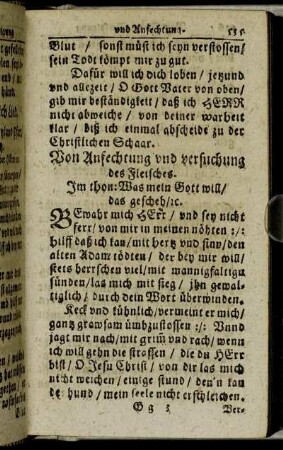 vnd Anfechtung. 535
Blut / sonst müst ich seyn verstossen /
sein Todt kömpt mir zu gut.
Dafür will ich dich loben / jetzund
vnd allezeit / O Gott Vater von oben /
gib mir beständigkeit / daß ich HERR
nicht abweiche / von deiner warheit
klar / biß ich einmal abscheide zu der
Christlichen Schaar.
Von Anfechtung vnd versuchung
des Fleisches.
Im thon: Was mein Gott will /
das gescheh / ꝛc.
BEwahr mich HErr / vnd sey nicht
ferr / von mir in meinen nöhten :/:
hilff daß ich kan / mit hertz vnd sinn / den
alten Adam tödten / der bey mir will /
stets herrschen viel / mit mannigfaltigē
sünden / las mich mit sieg / jhn gewal-
tiglich / durch dein Wort überwinden.
Keck vnd kühnlich / vermeint er mich /
gantz grawsam ümbzustossen :/: Vnnd
jagt mir nach / mit grim̃ vnd rach / wenn
ich will gehn die strassen / die du HErr
bist / O Jesu Christ / von dir las mich
nicht weichen / einige stund / den'n kan
der hund / mein seele nicht erschleichen.
G g 3 Ver-